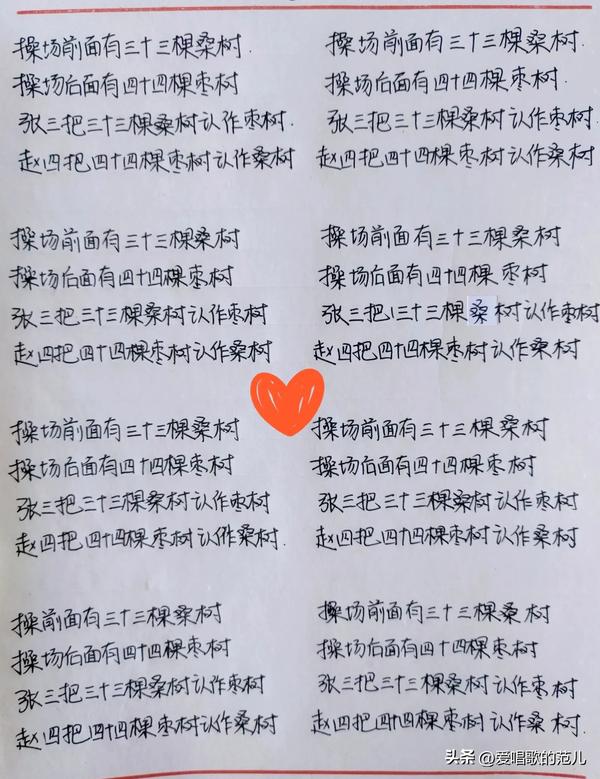 操场前面有三十三棵桑树.
操场后面有四十四棵枣树
张三把三十三棵桑树认作枣树.
赵四把四十四棵枣树认作桑树
操场前面有三十三棵桑树.
操场后面有四十四棵枣树.
张三把三十三棵桑树认作枣树.
赵四把四十四棵枣树认作桑树.
操场前面有三十三棵桑树
操场后面有四十四棵枣树
张三把三十三棵桑树认作枣树
赵四把四十四棵枣树认作桑树
操场前面有三十三棵桑树
操场后面有四十四棵枣树
张三把三十三棵桑树认作枣树
赵四把四十四棵枣树认作桑树
操场前面有三十三棵桑树
操场后面有四十四棵枣树
张三把三十三棵桑树认作枣树
赵四把四十四棵枣树认作桑树.
操场前面有三十三棵桑树
操场后面有四十四棵枣树
张三把三十三棵桑树认作枣树
赵四把四十四棵枣树认作桑树
操前面有三十三棵桑树
操场后面有四十四棵枣树
张三把三十三棵桑树认作枣树
赵四把四十四棵枣树认作桑树
操场前面有三十三棵桑树
操场后面有四十四棵枣树
张三把三十三棵桑树认作枣树
赵四把四十四棵枣树认作桑树.
头条 @爱唱歌的范儿